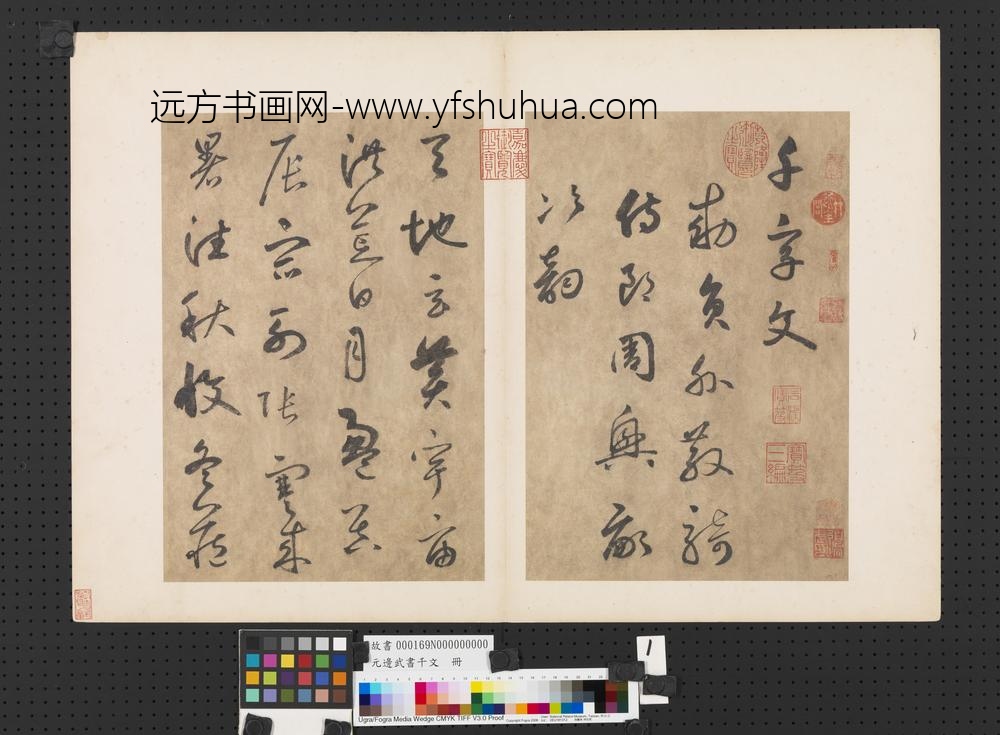 远方书画网-www.yfshuhua.com
千字文
勅員外散騎
侍郎周興嗣
次韻
天地玄黃宇宙
洪荒日月盈昃
辰宿列張寒來
暑往秋收冬藏
嘉慶御覽之寶
乾隆御覽之寶
寶笈三編
故書 000169N000000000
元邊武書千文 冊
1
Ugra/Fogra Media Wedge CMYK TIFF V3.0 Proof